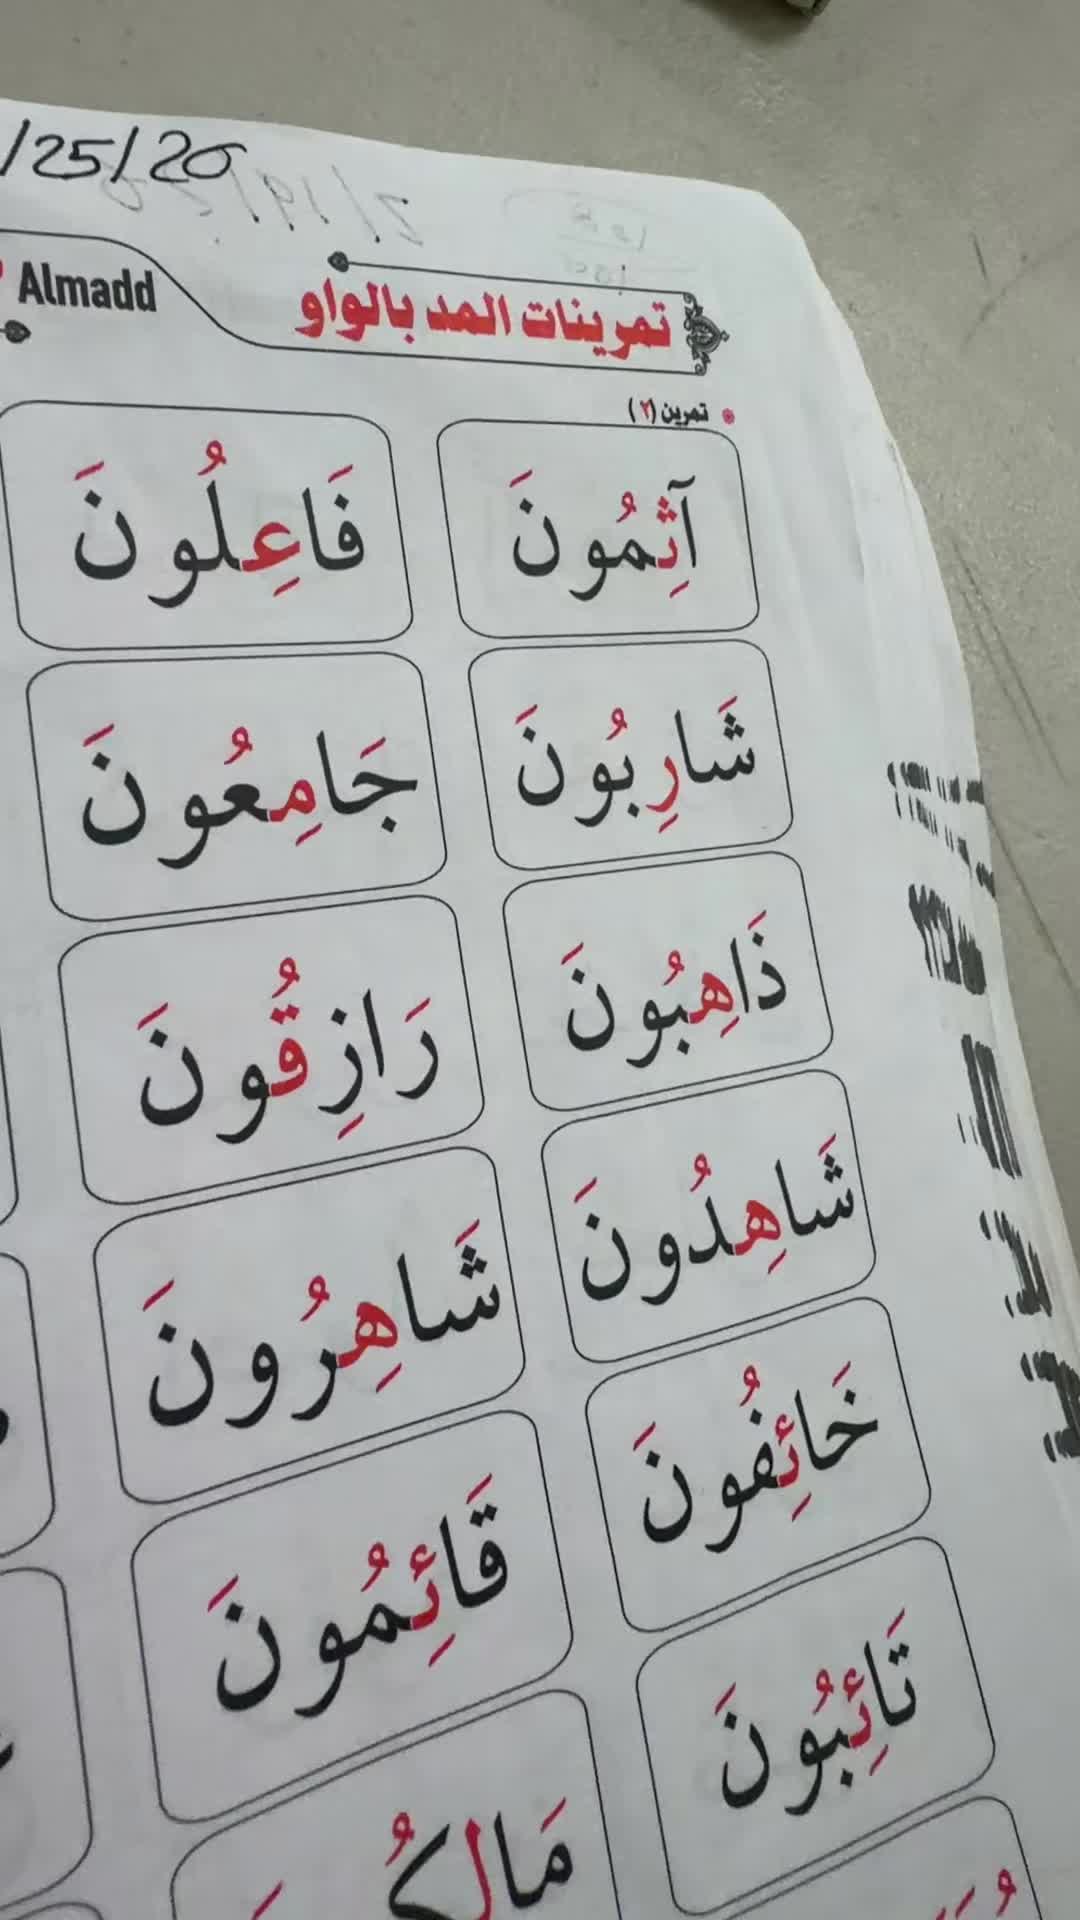 /25/20
Almadd
تمرينات المد بالواو
تمرين (٢)
آثِمُونَ فَاعِلُونَ
شَارِبُونَ جَامِعُونَ
ذَاهِبُونَ رَازِقُونَ
شَاهِدُونَ شَاهِرُونَ
خَائِفُونَ قَائِمُونَ
تَائِبُونَ